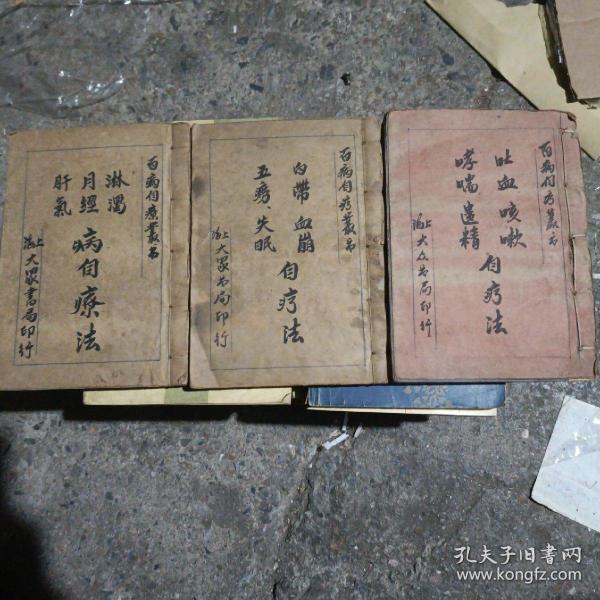 百病自療叢書
淋濁
月經
肝氣
病自療法
上海大眾書局印行
百病自疗叢书
白帶血崩
五痨·失眠
自疗法
上海大眾书局印行
百病自疗叢书
吐血咳嗽
哮喘遗精
自疗法
上海大众书局印行
孔夫子旧书网
www.kongfz.com